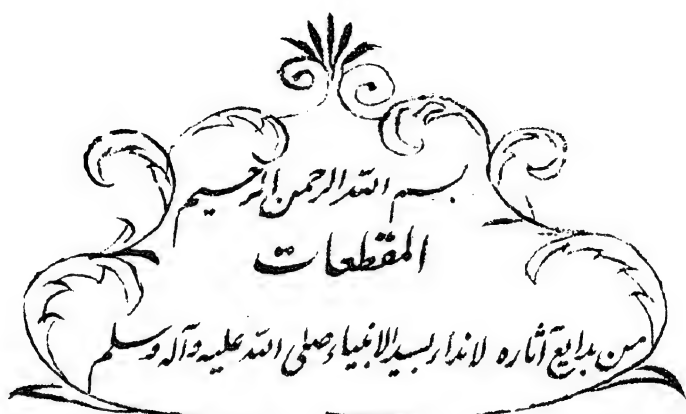 بسم الله الرحمن الرحيم
المقطعات
من بدايع آثاره لانذار بسيد الانبياء صلى الله عليه وآله وسلم